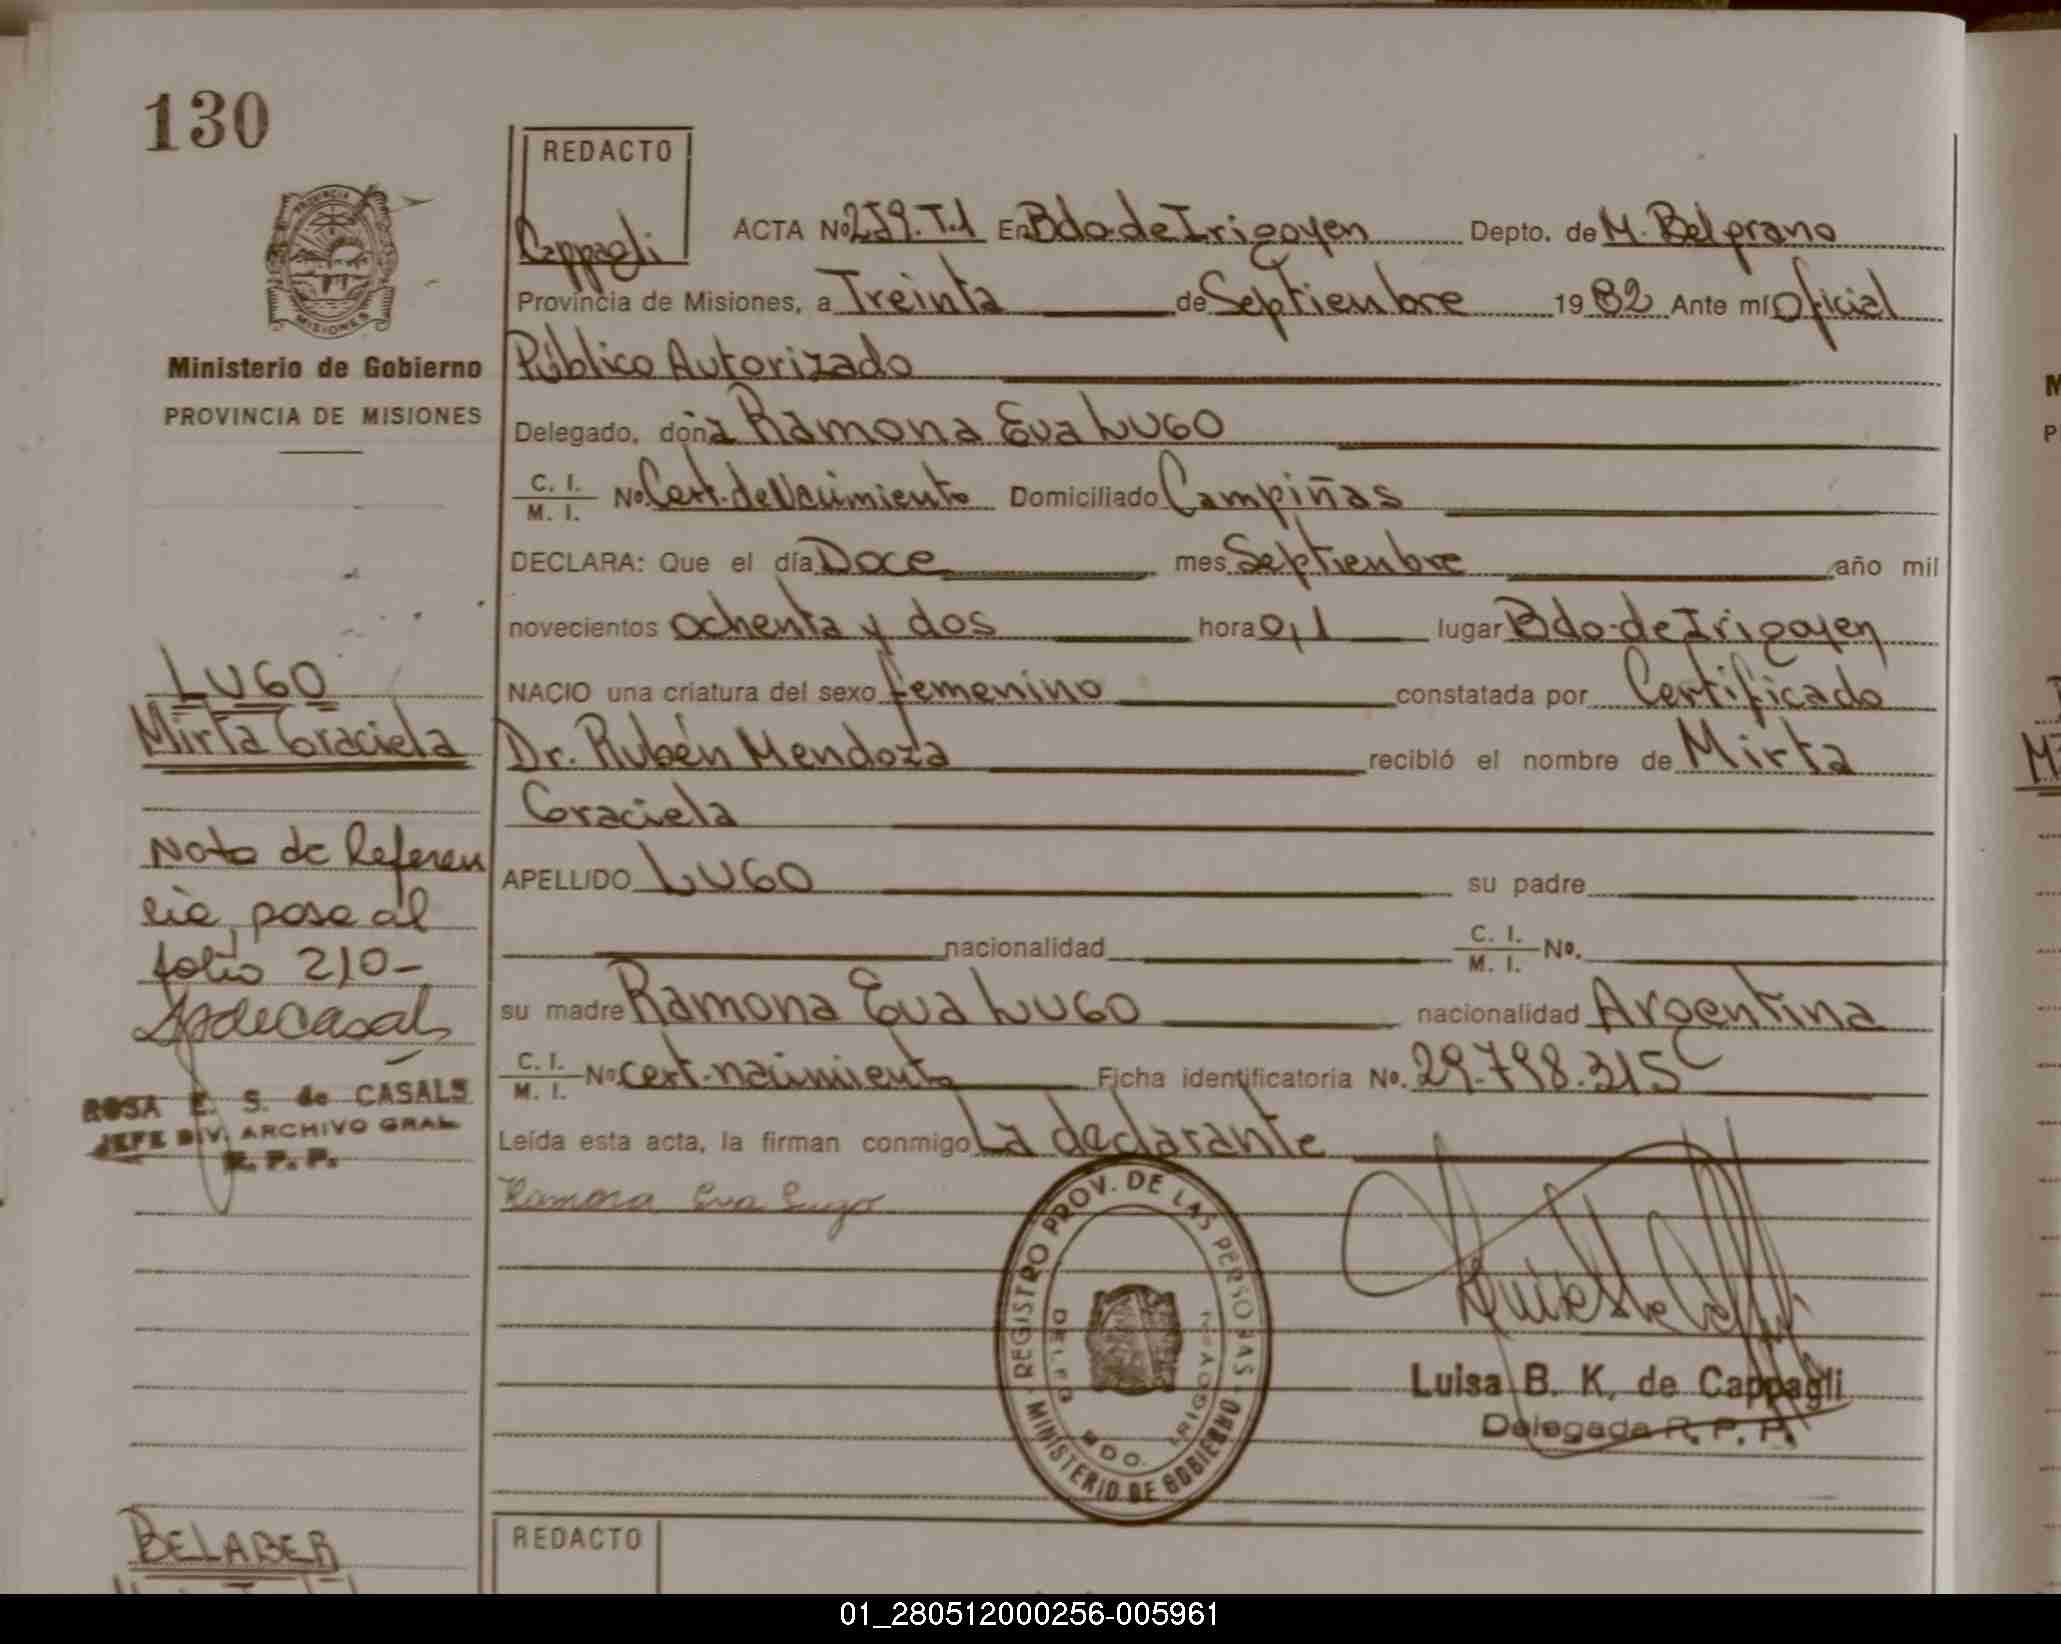 130
REDACTO
Cappagli
PROVINCIA
MISIONES
Ministerio de Gobierno
PROVINCIA DE MISIONES
ACTA Nº 259.T.1 En Bdo. de Irigoyen Depto. de M. Belgrano
Provincia de Misiones, a Treinta de Septiembre 1982 Ante mí Oficial
Público Autorizado
Delegado, doña Ramona Eva LUGO
C. I. / M. I. Nº Cert. de Nacimiento Domiciliado Campiñas
DECLARA: Que el día Doce mes Septiembre año mil
novecientos ochenta y dos hora 0,1 lugar Bdo. de Irigoyen
NACIO una criatura del sexo femenino constatada por Certificado
Dr. Rubén Mendoza recibió el nombre de Mirta
Graciela
APELLIDO LUGO su padre
nacionalidad C. I. / M. I. Nº.
su madre Ramona Eva LUGO nacionalidad Argentina
C. I. / M. I. Nº cert. nacimiento Ficha identificatoria Nº. 29.798.315 C
Leída esta acta, la firman conmigo La declarante
Ramona Eva Lugo
LUGO
Mirta Graciela
Nota de Referen
cia, pase al
folio 210-
ROSA E. S. de CASALS
JEFE DIV. ARCHIVO GRAL.
R. P. P.
REGISTRO PROV. DE LAS PERSONAS
MINISTERIO DE GOBIERNO
DELEG. BDO. IRIGOYEN
Luisa B. K. de Cappagli
Delegada R. P. P.
BELABER
REDACTO
01_280512000256-005961